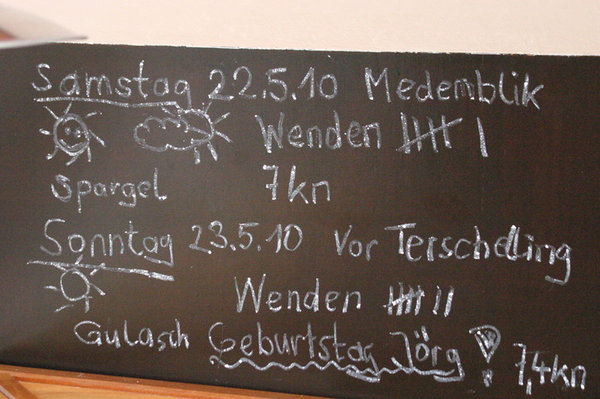 Samstag 22.5.10 Medemblik
Wenden 𝍸 |
Spargel 7kn
Sonntag 23.5.10 Vor Terschelling
Wenden 𝍸 ||
Gulasch Geburtstag Jörg ! 7,4kn